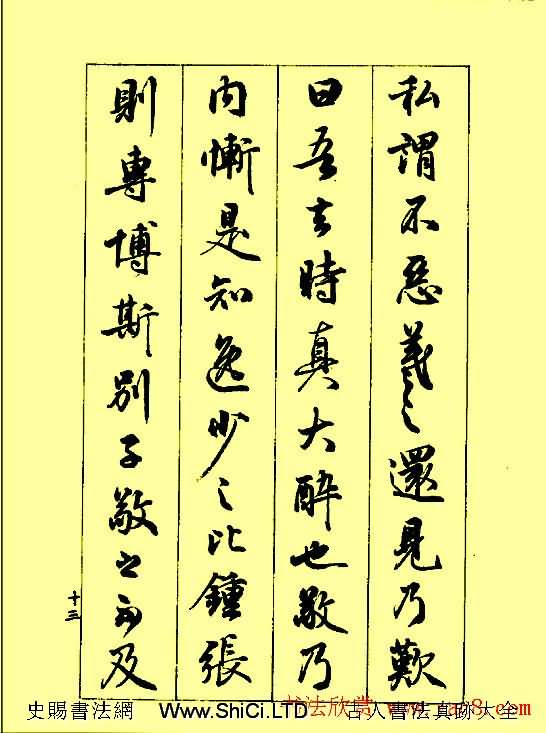 私謂不惡羲之還見乃歎
曰吾去時真大醉也敬乃
內慚是知逸少之比鍾張
則專博斯別子敬之不及
十三
史賜書法網 Www.ShiCi.LTD 古人書法真跡大全
书法欣赏